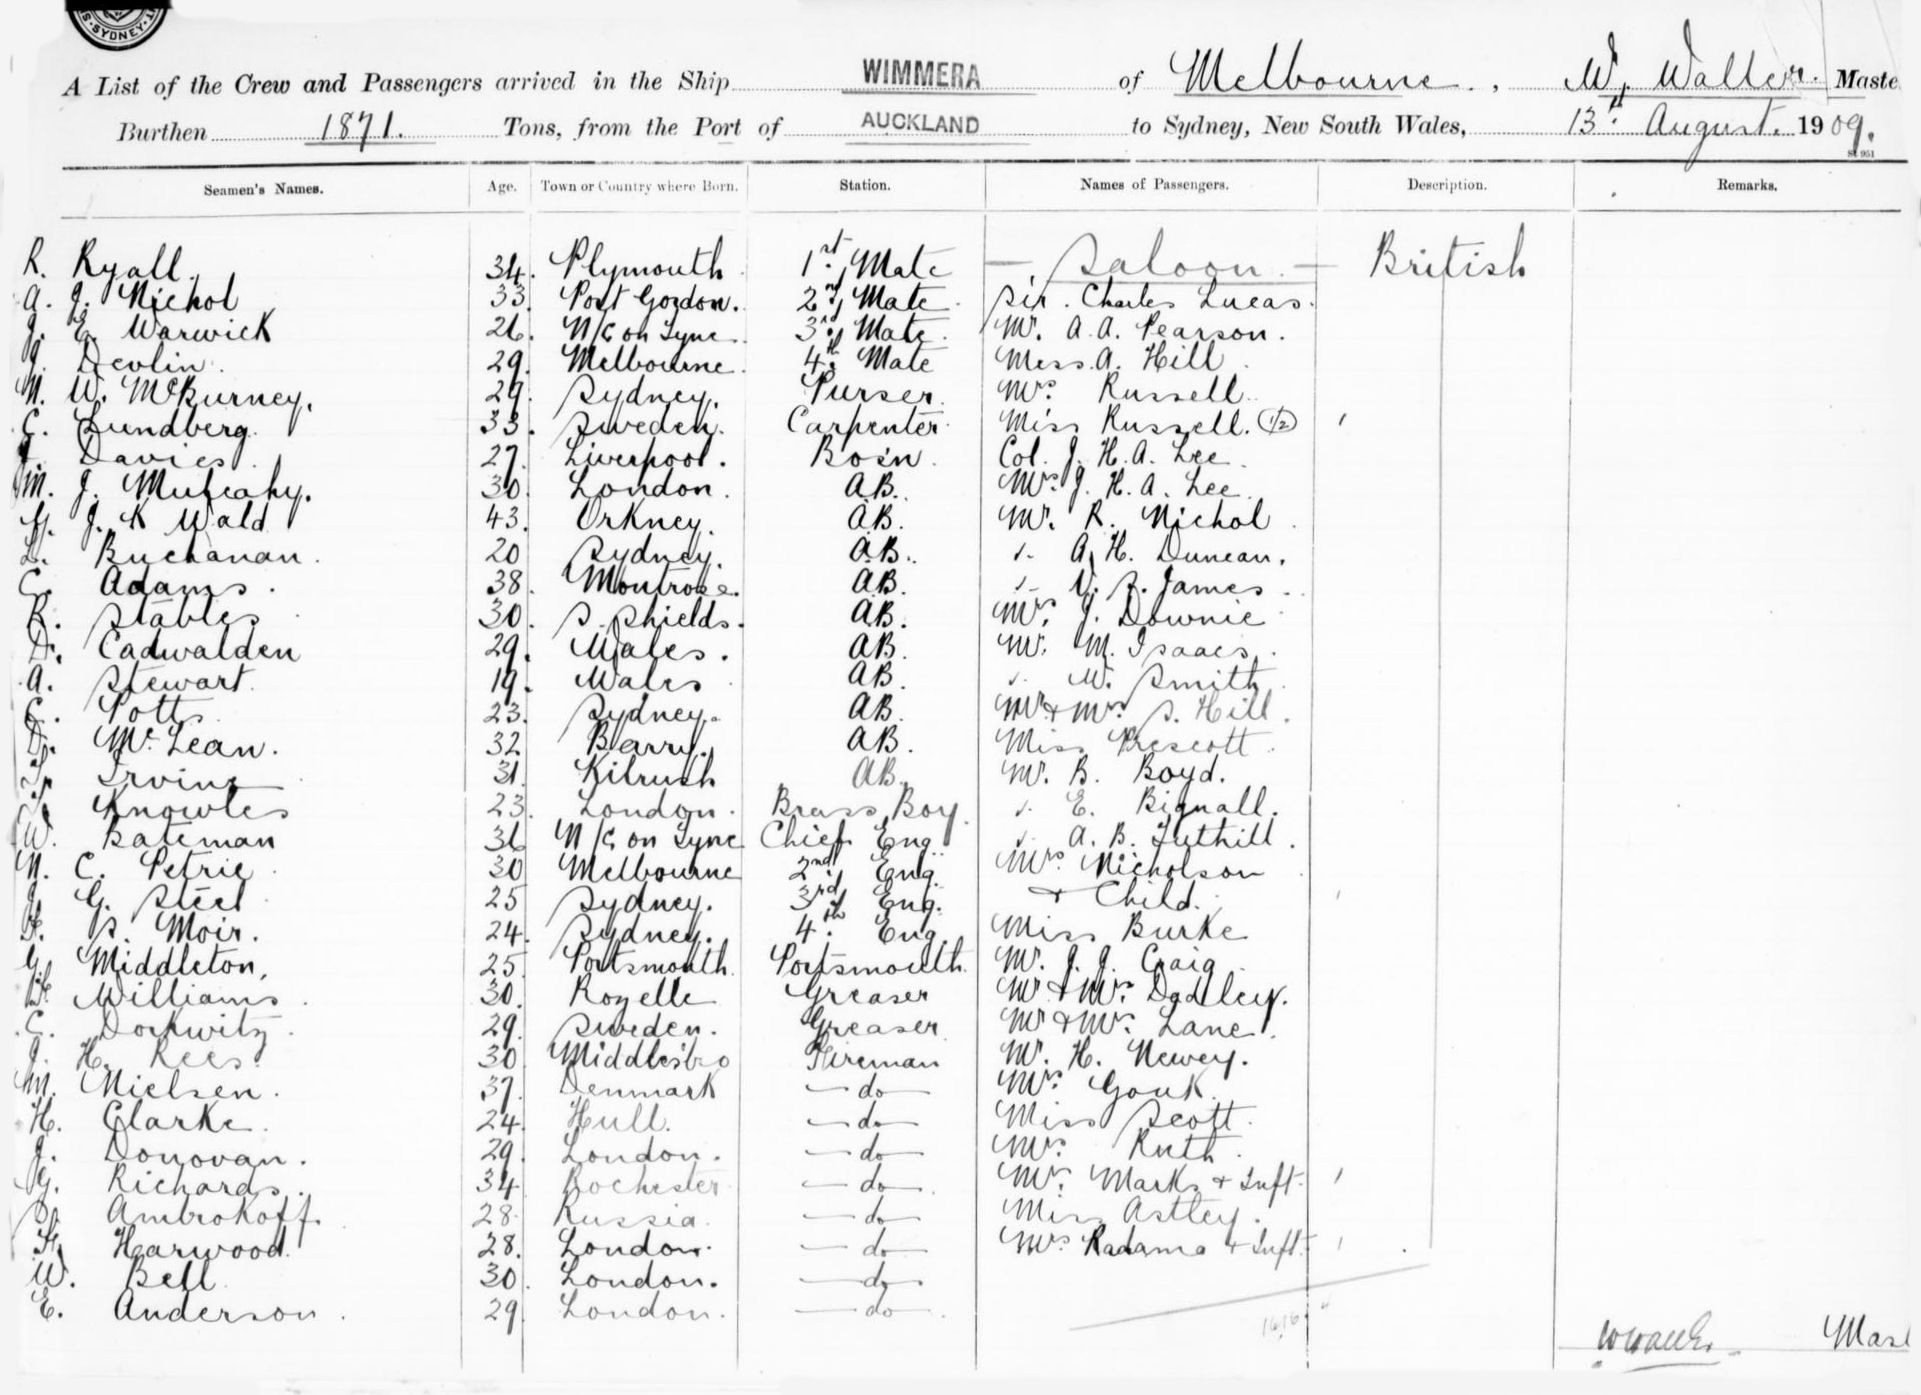 SYDNEY
A List of the Crew and Passengers arrived in the Ship WIMMERA of Melbourne, W. Waller. Maste
Burthen 1871. Tons, from the Port of AUCKLAND to Sydney, New South Wales, 13th August. 1909.
St 951
Seamen's Names. Age. Town or Country where Born. Station. Names of Passengers. Description. Remarks.
R. Ryall. 34. Plymouth 1st Mate — Saloon — British
A. J. Nichol 33 Port Gordon. 2nd Mate Sir. Charles Lucas.
J. E. Warwick 26. N/C on Tyne 3rd Mate. Mr. A. A. Pearson.
J. Devlin. 29. Melbourne. 4th Mate Miss. A. Hill
N. W. McBurney. 29. Sydney. Purser. Mrs. Russell.
C. Lundberg. 33. Sweden. Carpenter Miss Russell. (1/2)
Davies. 27. Liverpool. Bosn. Col. J. H. A. Lee.
M. J. Mulcahy. 30. London. AB. Mrs J. H. A. Lee.
J. K Wald 43. Orkney. AB. Mr. R. Nichol
L. Buchanan. 20 Sydney. AB. A. H. Duncan.
C. Adams. 38. Montrose. AB. V. S. James
R. Stables 30. S. Shields. AB. Mrs. J. Downie
D. Cadwalden 29. Wales. AB. Mr. M. Isaacs.
A. Stewart. 19. Wales AB. W. Smith
C. Potts. 23. Sydney. AB. Mr & Mrs S. Hill.
D. McLean. 32. Barry. AB. Miss Prescott.
Irvine 31. Kilrush AB. Mr. B. Boyd.
Knowles 23. London. Brass Boy. E. Bignall.
W. Bateman 36 N/C on Tyne Chief Eng. A. B. Tuthill.
N. C. Petrie 30 Melbourne 2nd Eng. Mrs Nicholson
J. G. Steel 25 Sydney. 3rd Eng. & Child.
S. Moir. 24. Sydney. 4th Eng. Miss Burke
G. Middleton, 25 Portsmouth. Portsmouth. Mr. J. J. Craig
Williams. 30. Rozelle Greaser Mr & Mrs. Dadley.
C. Dorkwitz. 29. Sweden. Greaser Mr & Mrs. Lane.
J. H. Rees. 30 Middlesbro Fireman Mr. H. Newey.
M. Nielsen. 37. Denmark — do — Mrs Gouk.
H. Clarke. 24. Hull. — do — Miss Scott.
J. Donovan. 29. London. — do — Mrs. Ruth.
G. Richards. 34. Rochester — do — Mrs. Marks & Inft.
S. Ambrokoff. 28. Russia. — do — Miss Astley.
Harwood. 28. London. — do — Mrs Radama & Inft.
W. Bell. 30. London. — do —
E. Anderson. 29. London. — do —
W Waller Mas